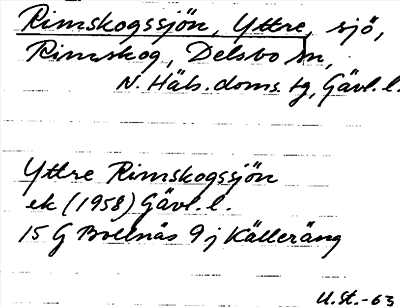 Rimskogssjön, Yttre, sjö,
Rimskog, Delsbo sn,
N. Häls. doms. tg, Gävl. l.
Yttre Rimskogssjön
ek (1958) Gävl. l.
15 G Bollnäs 9 j Källeräng
U. St. -63